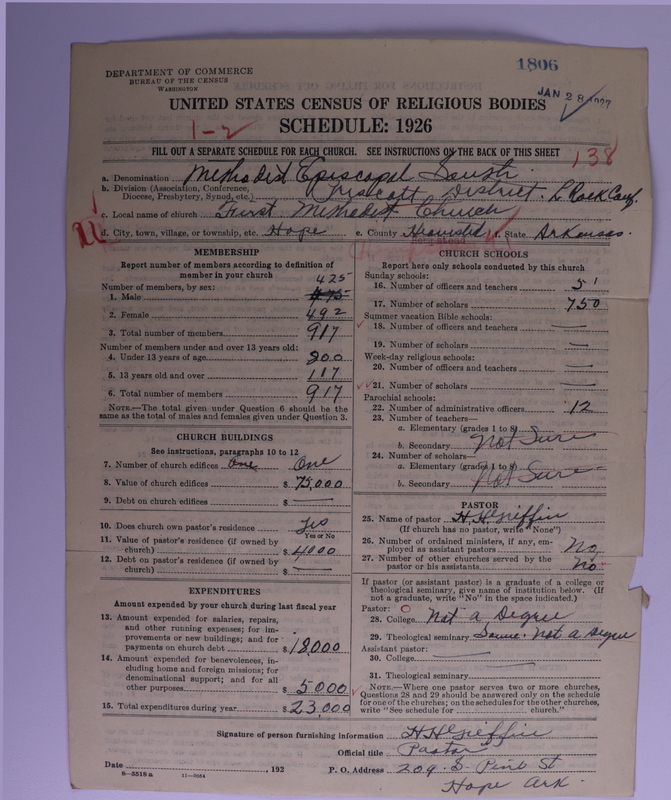 1806
DEPARTMENT OF COMMERCE
BUREAU OF THE CENSUS
WASHINGTON
JAN 28 1927
UNITED STATES CENSUS OF RELIGIOUS BODIES
1-2
SCHEDULE: 1926
FILL OUT A SEPARATE SCHEDULE FOR EACH CHURCH. SEE INSTRUCTIONS ON THE BACK OF THIS SHEET
138
a. Denomination Methodist Episcopal South
b. Division (Association, Conference, Diocese, Presbytery, Synod, etc.) Prescott District. L Rock Conf.
c. Local name of church First Methodist Church
d. City, town, village, or township, etc. Hope e. County f. State Arkansas.
MEMBERSHIP
Report number of members according to definition of
member in your church
Number of members, by sex: 425
1. Male 475
2. Female 492
3. Total number of members 917
Number of members under and over 13 years old:
4. Under 13 years of age 800
5. 13 years old and over 117
6. Total number of members 917
NOTE.—The total given under Question 6 should be the
same as the total of males and females given under Question 3.
CHURCH BUILDINGS
See instructions, paragraphs 10 to 12
7. Number of church edifices One One
8. Value of church edifices $ 75,000
9. Debt on church edifices $ —
10. Does church own pastor's residence Yes
Yes or No
11. Value of pastor's residence (if owned by
church) $ 4000
12. Debt on pastor's residence (if owned by
church) $ —
EXPENDITURES
Amount expended by your church during last fiscal year
13. Amount expended for salaries, repairs,
and other running expenses; for im-
provements or new buildings; and for
payments on church debt $ 18,000
14. Amount expended for benevolences, in-
cluding home and foreign missions; for
denominational support; and for all
other purposes $ 5000
15. Total expenditures during year $ 23,000
CHURCH SCHOOLS
Report here only schools conducted by this church
Sunday schools:
16. Number of officers and teachers 51
17. Number of scholars 750
Summer vacation Bible schools:
18. Number of officers and teachers —
19. Number of scholars —
Week-day religious schools:
20. Number of officers and teachers —
21. Number of scholars —
Parochial schools:
22. Number of administrative officers 12
23. Number of teachers—
a. Elementary (grades 1 to 8)
b. Secondary Not Sure
24. Number of scholars—
a. Elementary (grades 1 to 8)
b. Secondary Not Sure
PASTOR
25. Name of pastor H H Griffin
(If church has no pastor, write "None")
26. Number of ordained ministers, if any, em-
ployed as assistant pastors No
27. Number of other churches served by the
pastor or his assistants No
If pastor (or assistant pastor) is a graduate of a college or
theological seminary, give name of institution below. (If
not a graduate, write "No" in the space indicated.)
Pastor:
28. College Not a Degree
29. Theological seminary Same. Not a Degree
Assistant pastor:
30. College —
31. Theological seminary
NOTE.—Where one pastor serves two or more churches,
Questions 28 and 29 should be answered only on the schedule
for one of the churches; on the schedules for the other churches,
write "See schedule for church."
Signature of person furnishing information H H Griffin
Official title Pastor
Date , 192 P. O. Address 209. S. Pine St
8-5518 a 11-9084 Hope Ark.